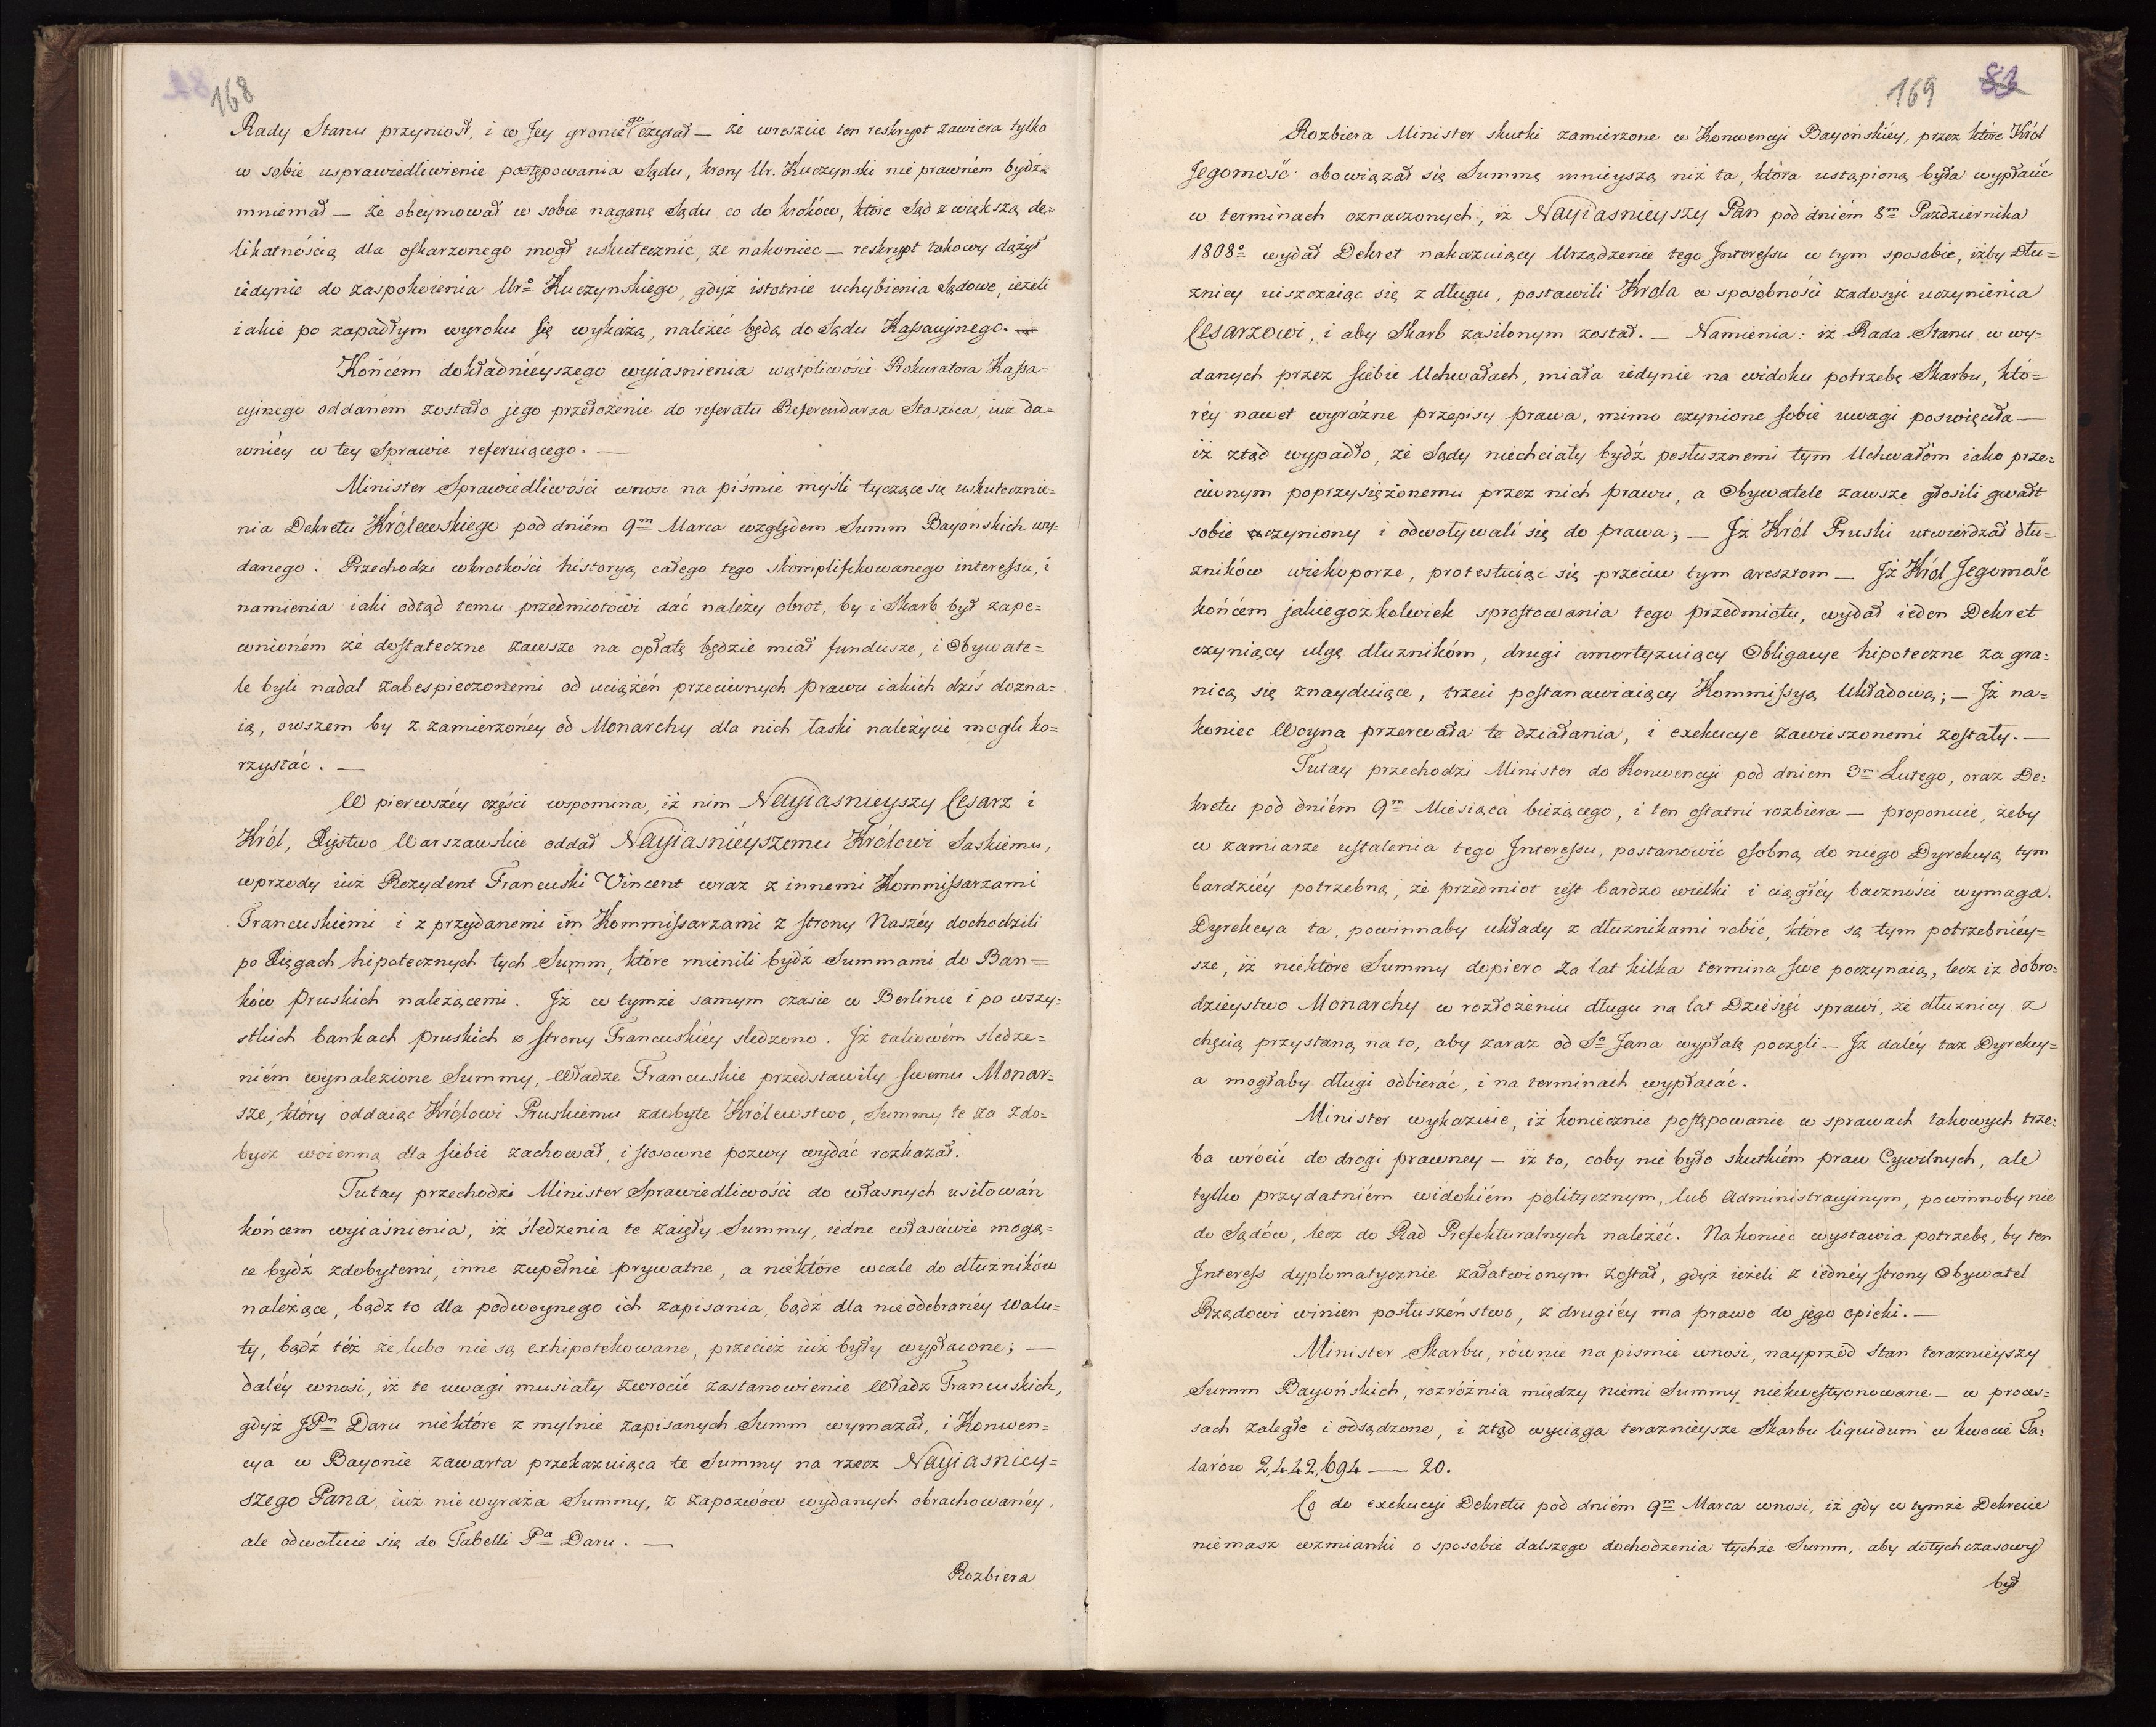 168
Rady Stanu przyniosł, i w Jey gronie go czytał — że wreszcie ten reskrypt zawiera tylko
w sobie usprawiedliwienie postępowania Sądu, ktory Ur. Kuczynski nie prawném bydź
mniemał — że obeymował w sobie naganę Sądu co do kroków, które Sąd z większą de=
likatnością dla oskarzonego mogł uskutecznić, że nakoniec — reskrypt takowy dążył
iedynie do zaspokoienia Uro Kuczynskiego, gdyż istotnie uchybienia Sądowe, ieżeli
iakie po zapadłym wyroku się wykażą, należeć będą do Sądu Kassacyjnego. —
Końcém dokładnieyszego wyiasnienia wątpliwości Prokuratora Kassa=
cyjnego oddaném zostało jego przedłożenie do referatu Referendarza Staszica, iuż da=
wniéy w tey Sprawie referuiącego. —
Minister Sprawiedliwości wnosi na piśmie myśli tyczące się uskutecznie=
nia Dekretu Królewskiego pod dniém 9m Marca względem Summ Bayońskich wy=
danego. Przechodzi wkrotkości historyą całego tego skomplifikowanego interessu, i
namienia iaki odtąd temu przedmiotowi dać należy obrot, by i Skarb był zape=
wnioném że dostateczne zawsze na opłatę będzie miał fundusze, i Obywate=
le byli nadal zabespieczonemi od uciążeń przeciwnych prawu iakich dziś dozna=
ią, owszem by z zamierzonéy od Monarchy dla nich łaski należycie mogli ko=
rzystać. —
W pierwszéy części wspomina, iż nim Nayiasnieyszy Cesarz i
Król, Xięstwo Warszawskie oddał Nayiasniéyszemu Królowi Saskiemu,
wprzody iuż Rezydent Francuski Vincent wraz z innemi Kommissarzami
Francuskiemi i z przydanemi im Kommissarzami z strony Naszéy dochodzili
po Xięgach hipotecznych tych Summ, które mienili bydź Summami do Ban=
ków Pruskich należącemi. Iż w tymże samym czasie w Berlinie i po wszy=
stkich bankach pruskich z strony Francuskiéy śledzono. Iż takowém śledze=
niém wynalezione Summy, Władze Francuskie przedstawiły swemu Monar=
sze, który oddaiąc Królowi Pruskiemu zdobyte Królewstwo, Summy te za zdo=
bycz woienną dla siebie zachował, i stosowne pozwy wydać rozkazał.
Tutay przechodzi Minister Sprawiedliwości do własnych usiłowań
końcem wyiaśnienia, iż śledzenia te zaięły Summy, iedne właściwie mogą=
ce bydź zdobytemi, inne zupełnie prywatne, a niektóre wcale do dłużników
należące, bądz to dla podwoynego ich zapisania, bądź dla nieodebranéy walu=
ty, bądź téż że lubo nie są exhipotekowane, przecież iuż były wypłacone; —
daléy wnosi, iż te uwagi musiały zwrócić zastanowienie Władz Francuskich,
gdyż JPn Daru niektóre z mylnie zapisanych Summ wymazał, i Konwen=
cya w Bayonie zawarta przekazuiąca te Summy na rzecz Nayiasniey=
szego Pana, iuż nie wyraża Summy, z zapozwów wydanych obrachowanéy,
ale odwołuie się do Tabelli Pa Daru. —
Rozbiera
169 82
Rozbiera Minister skutki zamierzone w Konwencyi Bayońskiéy, przez które Król
Jegomość obowiązał się Summę mnieyszą niż ta, która ustąpioną była wypłacić
w terminach oznaczonych, iż Nayiasnieyszy Pan pod dniém 8m Pazdziernika
1808o wydał Dekret nakazuiący Urządzenie tego Interessu w tym sposobie, iżby Dłu=
znicy uiszczaiąc się z długu, postawili Króla w sposobności zadosyć uczynienia
Cesarzowi, i aby Skarb zasilonym został. — Namienia: iż Rada Stanu w wy=
danych przez siebie Uchwałach, miała iedynie na widoku potrzebę Skarbu, któ=
réy nawet wyraźne przepisy prawa, mimo czynione sobie uwagi poswięciła —
iż ztąd wypadło, że Sądy niechciały bydź posłusznemi tym Uchwałóm iako prze=
ciwnym poprzysiężonemu przez nich prawu, a Obywatele zawsze głosili gwałt
sobie czyniony i odwoływali się do prawa; — Iż Król Pruski utwierdzał dłu=
zników w iich oporze, protestuiąc się przeciw tym aresztom — Iż Król Jegomość
końcém jakiegożkolwiek sprostowania tego przedmiotu, wydał ieden Dekret
czyniący ulgę dłuznikóm, drugi amortyzuiący Obligacye hipoteczne za gra=
nicą się znayduiące, trzeci postanawiaiący Kommissyą Układową; — Iż na=
koniec Woyna przerwała te działania, i exekucye zawieszonemi zostały. —
Tutay przechodzi Minister do Konwencyi pod dniem 3m Lutego, oraz De=
kretu pod dniém 9m Miesiąca bieżącego, i ten ostatni rozbiera — proponuie, żeby
w zamiarze ustalenia tego Interessu, postanowić osobną do niego Dyrekcyą tym
bardziéy potrzebną, że przedmiot iest bardzo wielki i ciągłéy baczności wymaga.
Dyrekcya ta, powinnaby układy z dłuznikami robić, które są tym potrzebniéy=
sze, iż niektóre Summy dopiero za lat kilka termina swe poczynaią, lecz iż dobro=
dzieystwo Monarchy w rozłożeniu długu na lat Dziesięć sprawi, że dłuznicy z
chęcią przystaną na to, aby zaraz od So Jana wypłatę poczęli — Iż daléy taż Dyrekcy=
a mogłaby długi odbierać, i na terminach wypłacać.
Minister wykazuie, iż koniecznie postępowanie w sprawach takowych trze=
ba wrócić do drogi prawney — iż to, coby nie było skutkiém praw Cywilnych, ale
tylko przydatniém widokiém politycznym, lub Administracyinym, powinnoby nie
do Sądów, lecz do Rad Prefekturalnych należéć. Nakoniec wystawia potrzebę, by ten
Interess dyplomatycznie załatwionym został, gdyż ieżeli z iednéy strony Obywatel
Rządowi winien posłuszeństwo, z drugiéy ma prawo do jego opieki. —
Minister Skarbu, równie na pismie wnosi, nayprzód stan teraznieyszy
Summ Bayońskich, rozróżnia między niemi Summy niekwestyonowane — w proces=
sach zaległe i odsądzone, i ztąd wyciąga teraznieysze Skarbu liquidum w kwocie Ta=
larów 2,442,694 — 20.
Co do exekucyi Dekretu pod dniém 9m Marca wnosi, iż gdy w tymże Dekrecie
niemasz wzmianki o sposobie dalszego dochodzenia tychże Summ, aby dotychczasowy
był